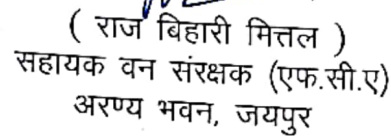 ( राज बिहारी मित्तल )
सहायक वन संरक्षक (एफ.सी.ए)
अरण्य भवन, जयपुर